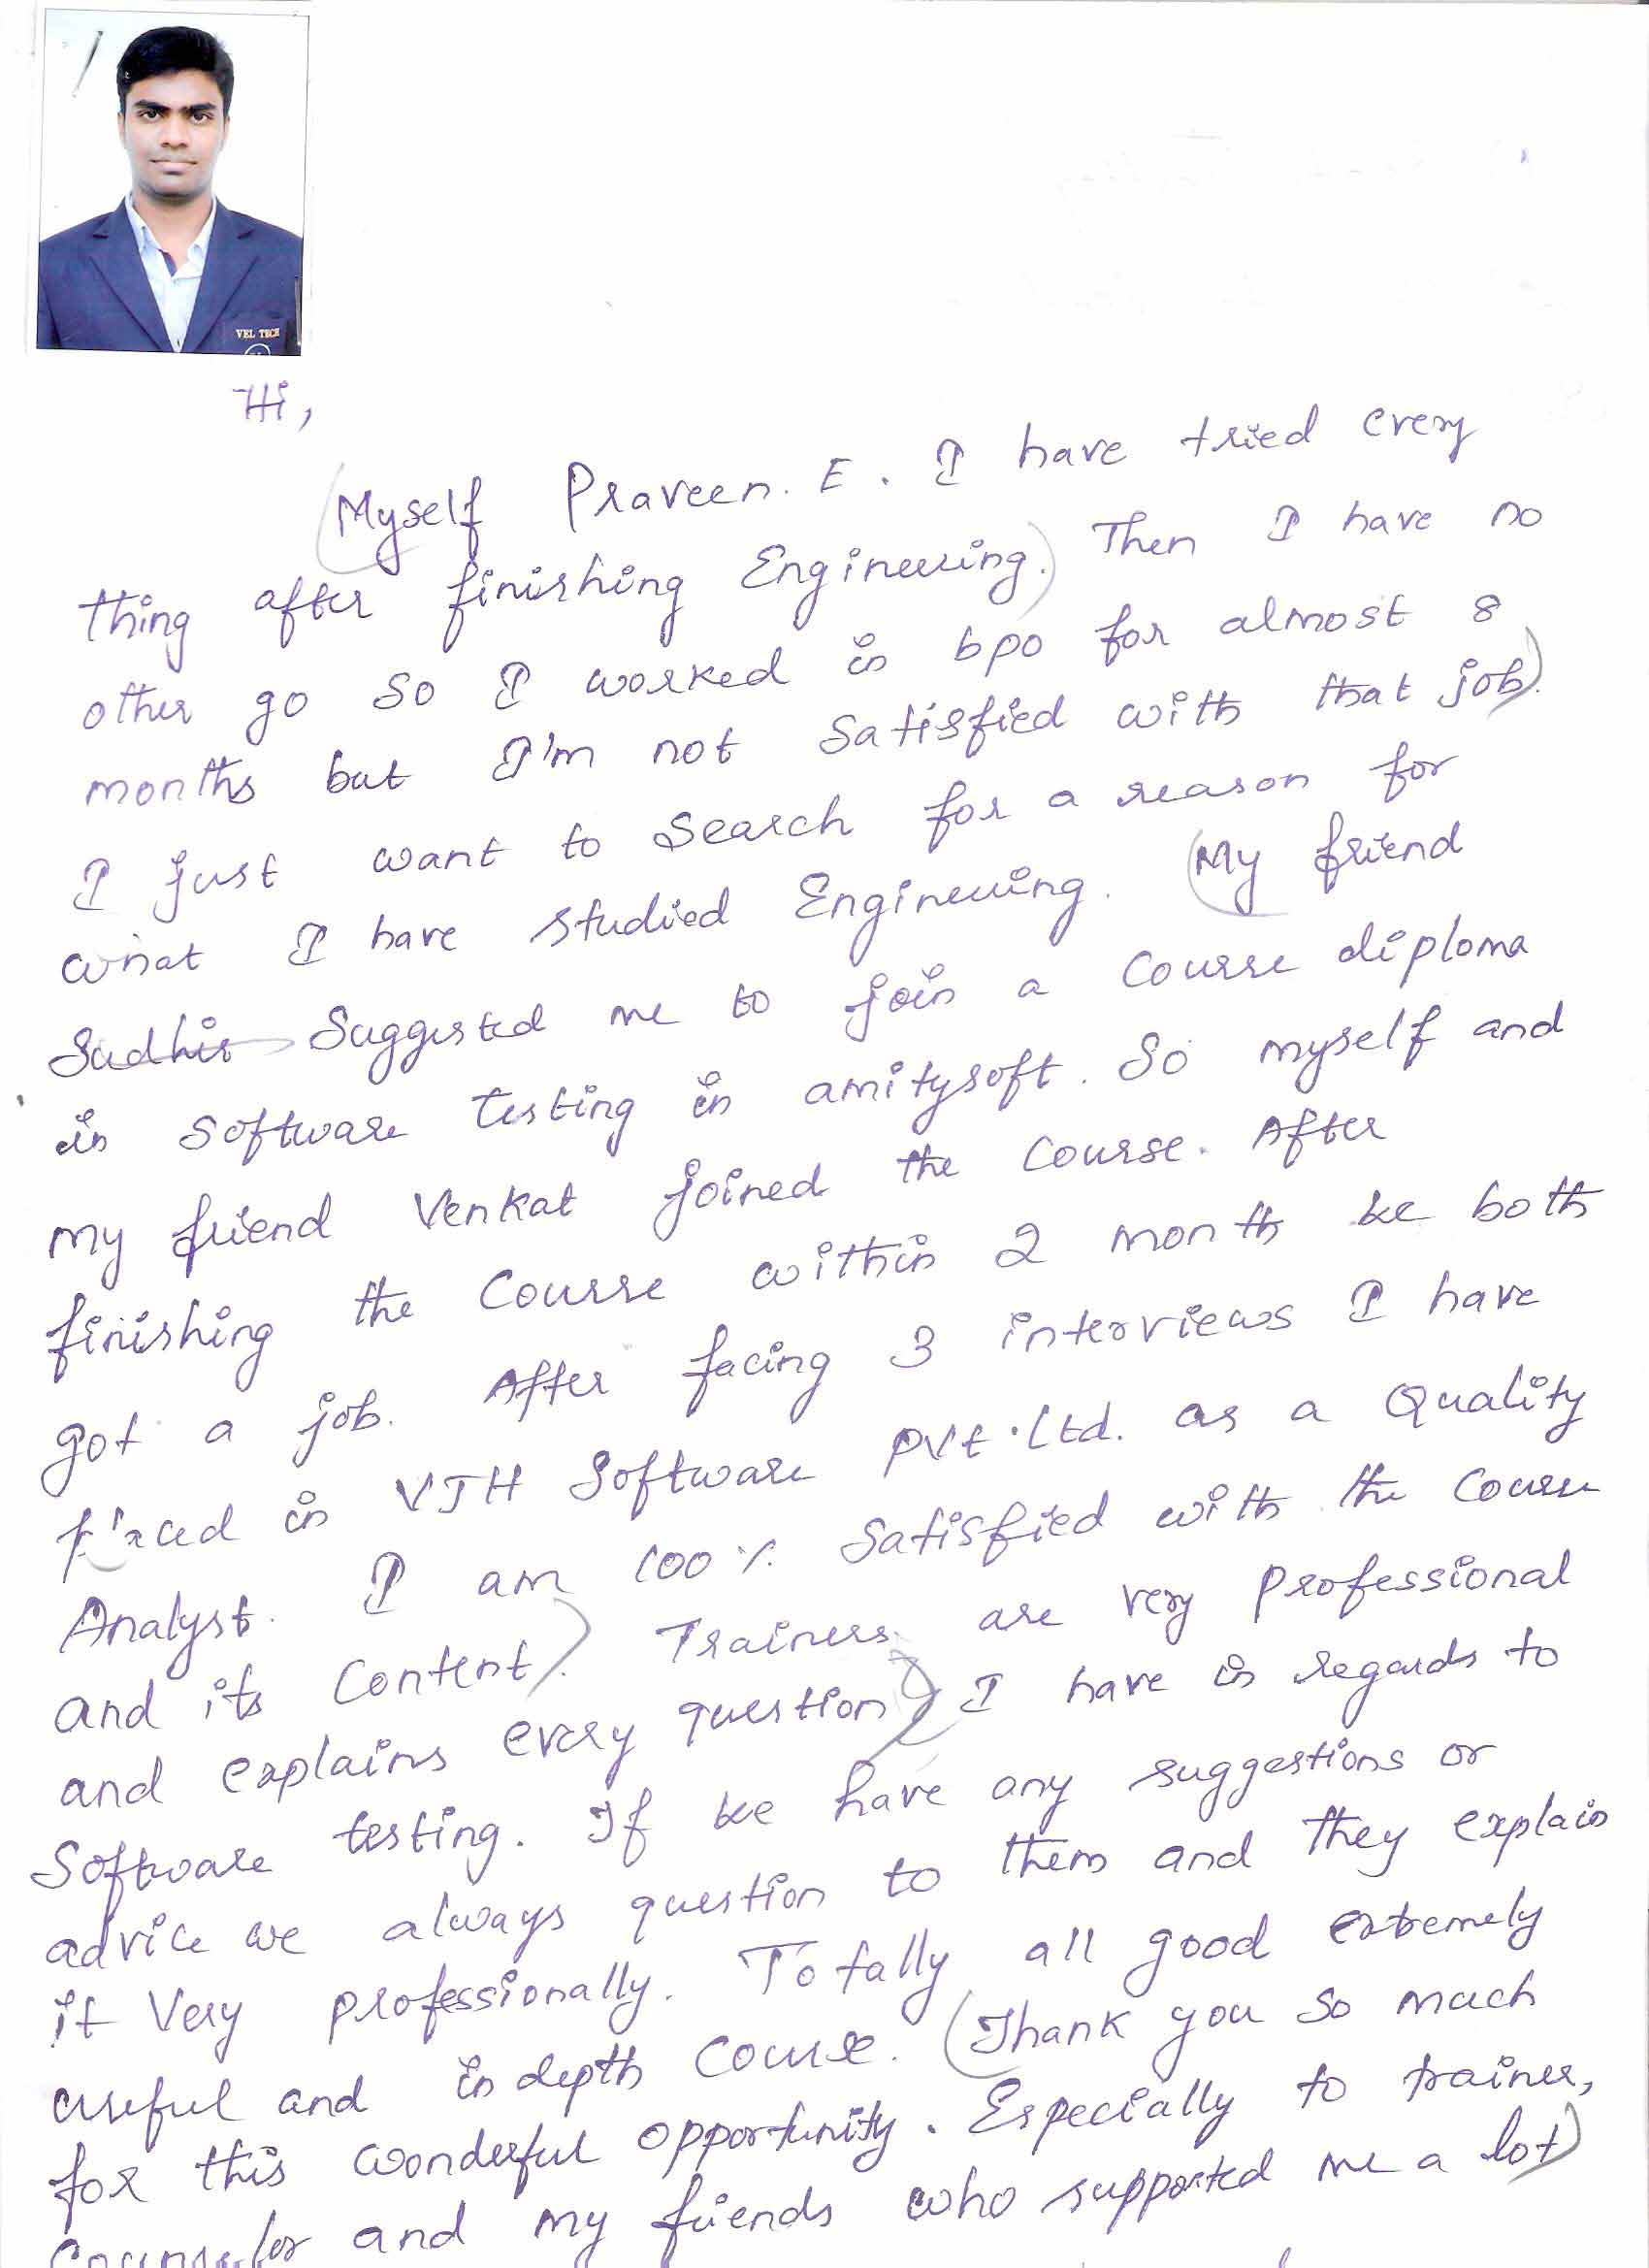 VEL TECH
Hi,
Myself Praveen. E. I have tried every
thing after finishing Engineering. Then I have no
other go so I worked in bpo for almost 8
months but I'm not satisfied with that job.
I just want to search for a reason for
what I have studied Engineering. My friend
Sudhir suggested me to join a course diploma
in software testing in amitysoft. So myself and
my friend Venkat joined the course. After
finishing the course within 2 month we both
got a job. After facing 3 interviews I have
placed in VJH Software Pvt.Ltd. as a Quality
Analyst. I am 100% satisfied with the course
and its content. Trainers are very professional
and explains every question I have in regards to
Software testing. If we have any suggestions or
advice we always question to them and they explain
it very professionally. Totally all good extremely
useful and in depth course. Thank you so much
for this wonderful opportunity. Especially to trainer,
counselor and my friends who supported me a lot